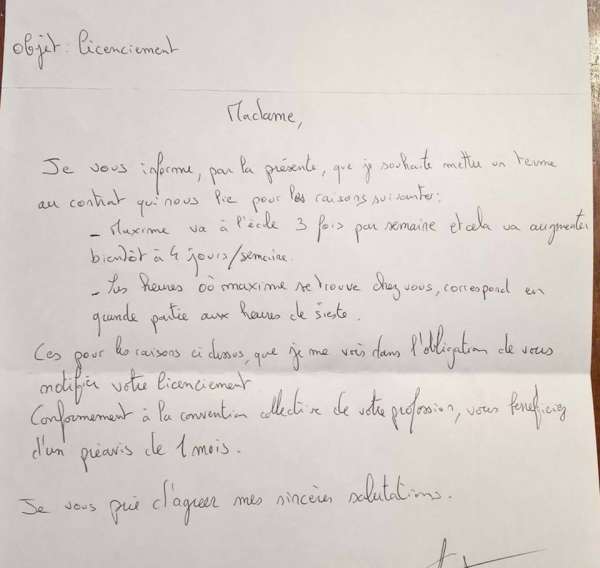 Objet : licenciement
Madame,
Je vous informe, par la présente, que je souhaite mettre un terme
au contrat qui nous lie pour les raisons suivantes :
- Maxime va à l'école 3 fois par semaine et cela va augmenter
bientôt à 4 jours/semaine.
- Les heures où maxime se trouve chez vous, correspond en
grande partie aux heures de sieste.
Ces pour les raisons ci dessus, que je me vois dans l'obligation de vous
notifier votre licenciement
Conformement à la convention collective de votre profession, vous beneficiez
d'un préavis de 1 mois.
Je vous prie d'agréer mes sincères salutations.